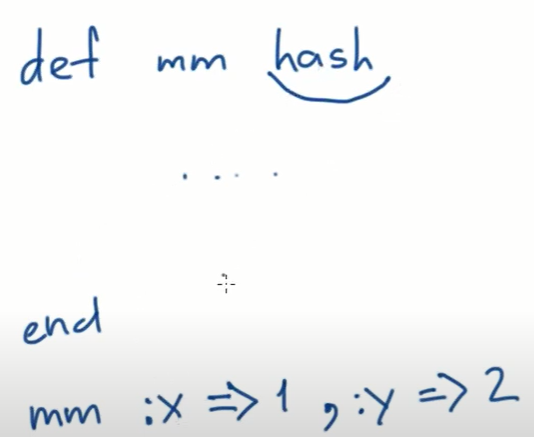 def mm hash
....
end
mm :x => 1 , :y => 2